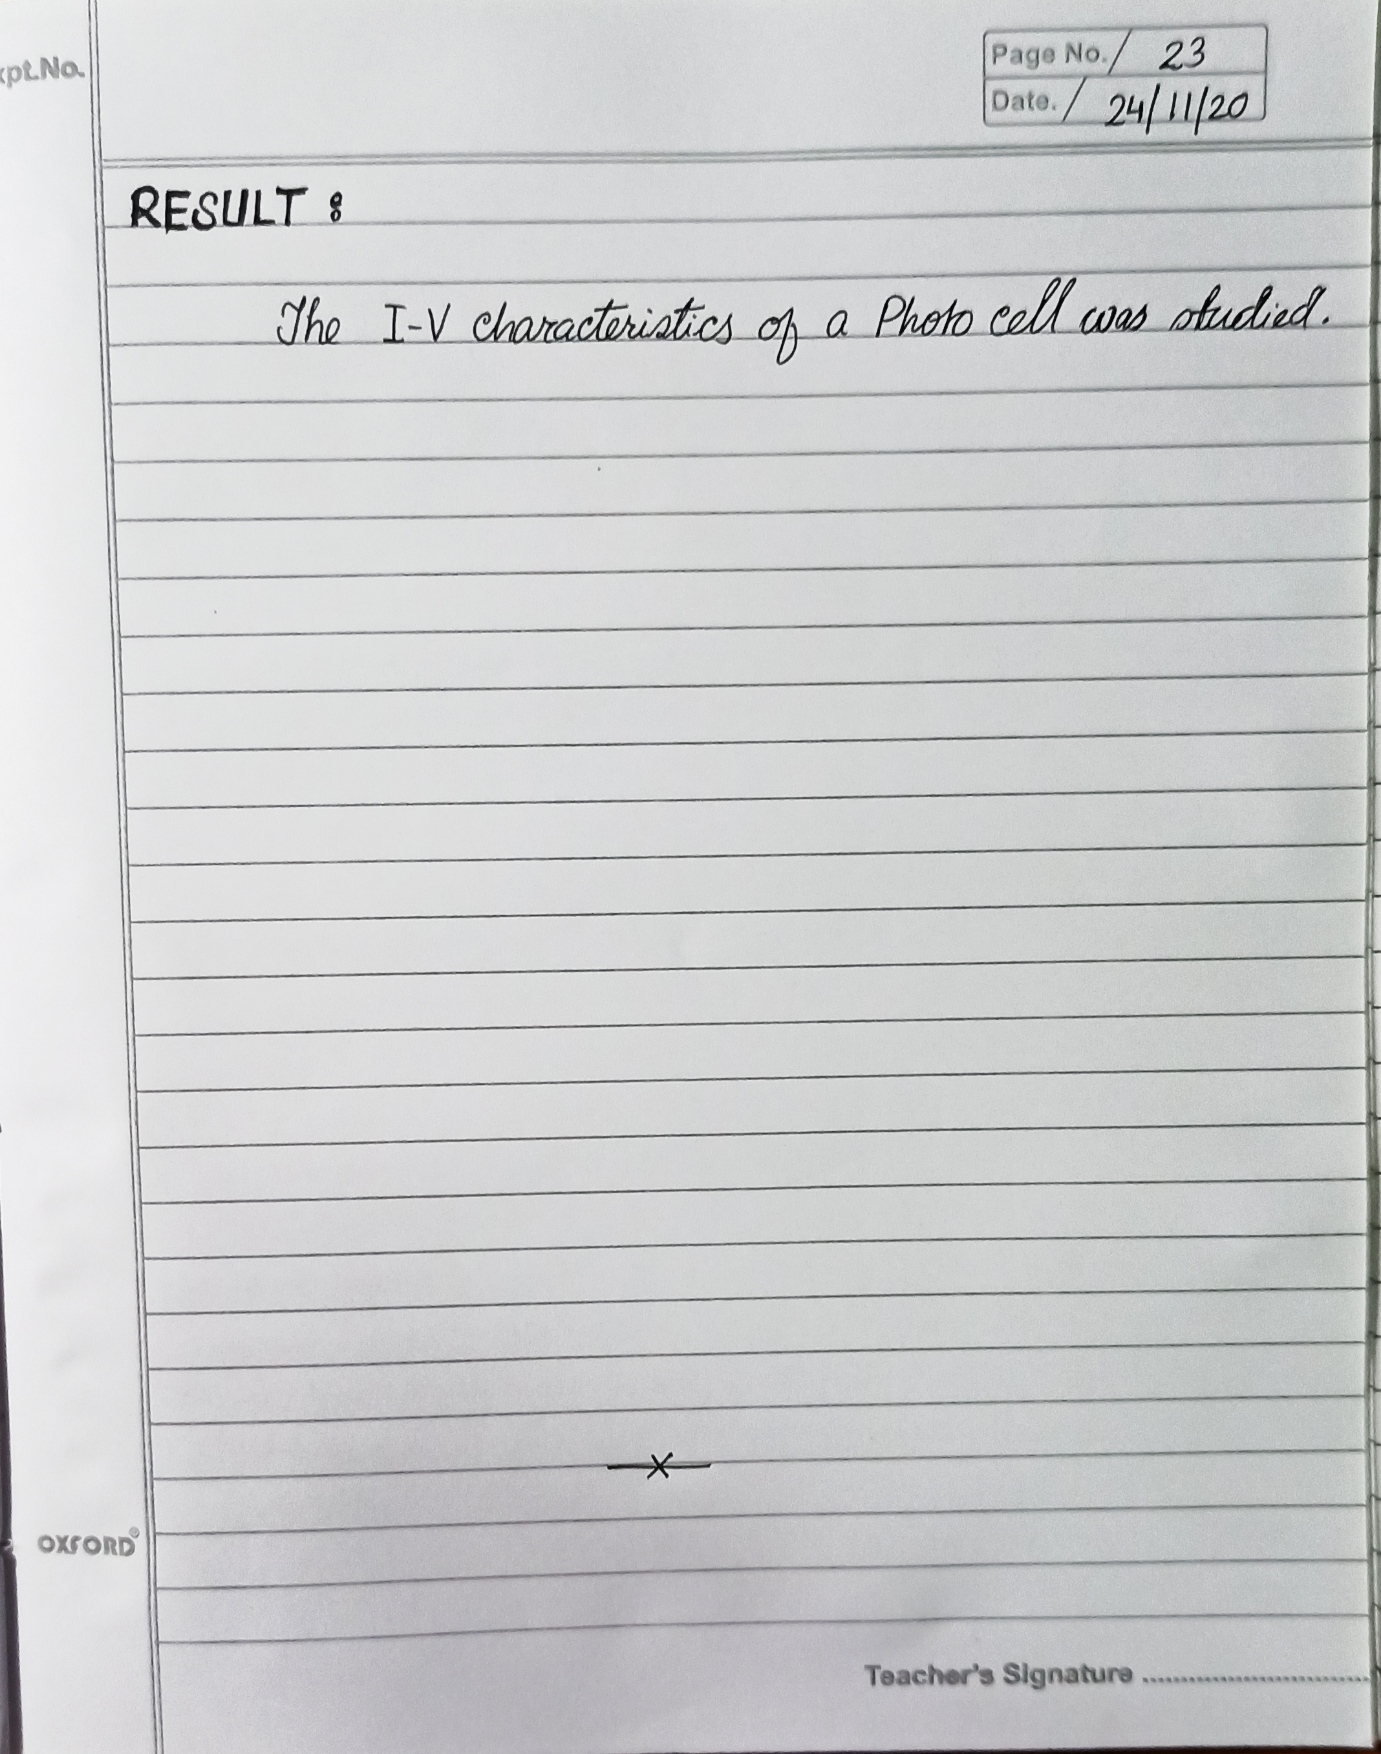 xpt.No.
Page No. / 23
Date. / 24/11/20
RESULT :
The I-V characteristics of a Photo cell was studied.
X
OXFORD®
Teacher's Signature ................................